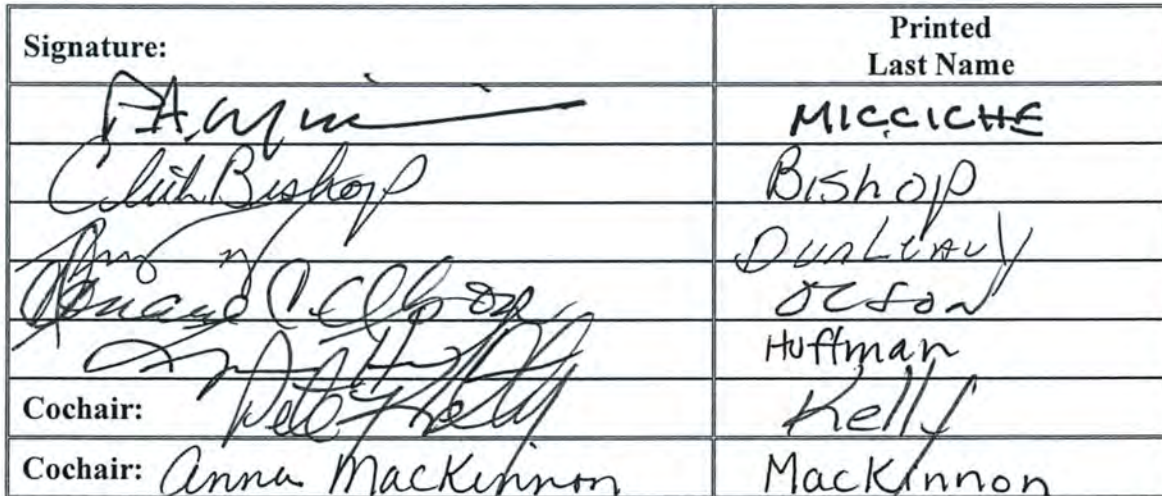 Signature: Printed
Last Name
MICCICHE
Bishop Bishop
Dunleavy
Donald C Olson OLSON
Huffman
Cochair: Pete Kelly Kelly
Cochair: Anna MacKinnon MacKinnon